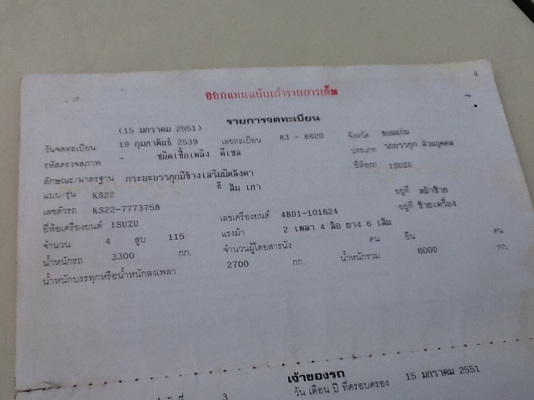 4
ออกแทนฉบับเก่ารายการเต็ม
รายการจดทะเบียน
(15 มกราคม 2551)
วันจดทะเบียน 19 กุมภาพันธ์ 2539 เลขทะเบียน 83 - 8620 จังหวัด ขอนแก่น
รหัสตรวจสภาพ - ชนิดเชื้อเพลิง ดีเซล ประเภท รถบรรทุก ส่วนบุคคล
ลักษณะ/มาตรฐาน กระบะบรรทุกมีข้างเสริมมีหลังคา ยี่ห้อรถ ISUZU
แบบ/รุ่น KS22 สี ส้ม เทา
เลขตัวรถ KS22-7773758 อยู่ที่ หน้าซ้าย
ยี่ห้อเครื่องยนต์ ISUZU เลขเครื่องยนต์ 4BD1-101624 อยู่ที่ ซ้ายเครื่อง
จำนวน 4 สูบ 115 แรงม้า 2 เพลา 4 ล้อ ยาง 6 เส้น
น้ำหนักรถ 3300 กก. จำนวนผู้โดยสารนั่ง คน ยืน คน
น้ำหนักบรรทุกหรือน้ำหนักลงเพลา 2700 กก. น้ำหนักรวม 6000 กก.
เจ้าของรถ
3 วัน เดือน ปี ที่ครอบครอง 15 มกราคม 2551